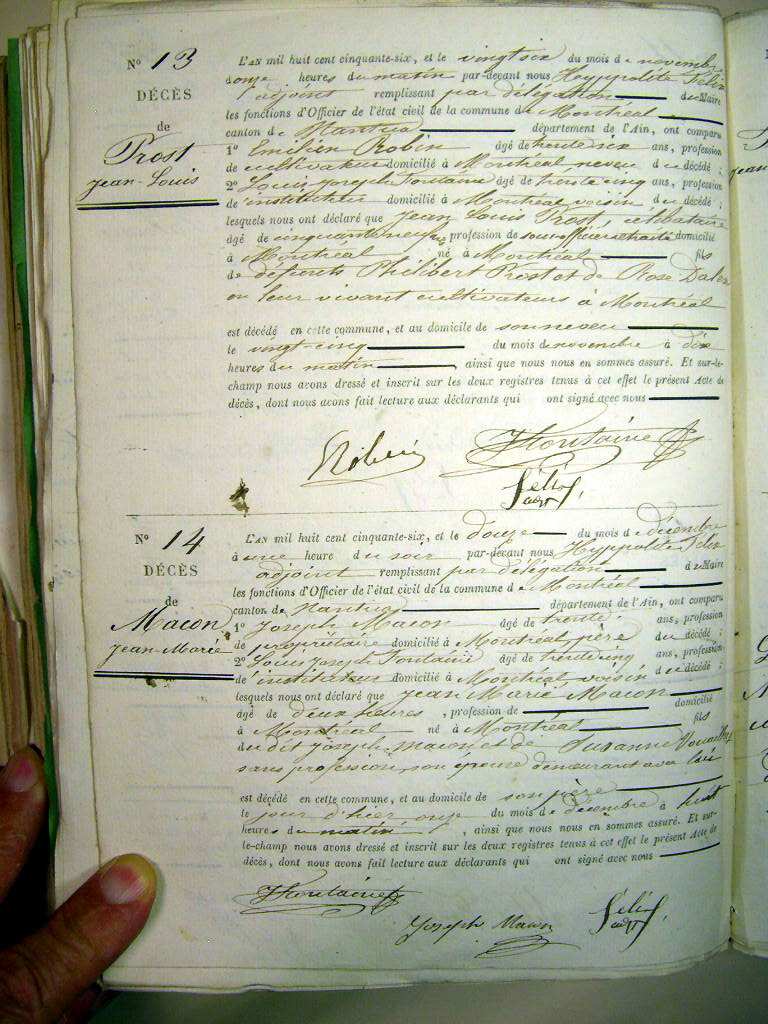 N° 13
DÉCÈS
de
Prost
Jean-Louis
L'AN mil huit cent cinquante-six, et le vingt six du mois de novembre
onze heures du matin par-devant nous Hyppolite Félix
adjoint remplissant par délégation du Maire
les fonctions d'Officier de l'état civil de la commune de Montréal
canton de Nantua département de l'Ain, ont comparu
1° Emilien Robin âgé de trente six ans, profession
de cultivateur domicilié à Montréal, neveu du décédé ;
2° Louis Joseph Fontaine âgé de trente cinq ans, profession
de instituteur domicilié à Montréal voisin du décédé ;
lesquels nous ont déclaré que Jean Louis Prost, célibataire
âgé de cinquante neuf ans, profession de sous-officier retraité domicilié
à Montréal né à Montréal fils
de défunts Philibert Prost et de Rose
en leur vivant cultivateurs à Montréal
est décédé en cette commune, et au domicile de son neveu
le vingt-cinq du mois de novembre à dix
heures du matin, ainsi que nous nous en sommes assuré. Et sur-le-
champ nous avons dressé et inscrit sur les deux registres tenus à cet effet le présent Acte de
décès, dont nous avons fait lecture aux déclarants qui ont signé avec nous
Robin Fontaine
Félix
adjt
N° 14
DÉCÈS
de
Macon
Jean-Marie
L'AN mil huit cent cinquante-six, et le douze du mois de décembre
à une heure du soir par-devant nous Hyppolite Félix
adjoint remplissant par délégation du Maire
les fonctions d'Officier de l'état civil de la commune de Montréal
canton de Nantua département de l'Ain, ont comparu
1° Joseph Macon âgé de trente ans, profession
de propriétaire domicilié à Montréal père du décédé ;
2° Louis Joseph Fontaine âgé de trente cinq ans, profession
de instituteur domicilié à Montréal voisin du décédé ;
lesquels nous ont déclaré que Jean Marie Macon
âgé de deux heures, profession de domicilié
à Montréal né à Montréal fils
du dit Joseph Macon et de Suzanne
sans profession, son épouse demeurant avec lui
est décédé en cette commune, et au domicile de son père
le jour d'hier onze du mois de décembre à huit
heures du matin, ainsi que nous nous en sommes assuré. Et sur-
le-champ nous avons dressé et inscrit sur les deux registres tenus à cet effet le présent Acte de
décès, dont nous avons fait lecture aux déclarants qui ont signé avec nous
Fontaine
Joseph Macon
Félix
adjt